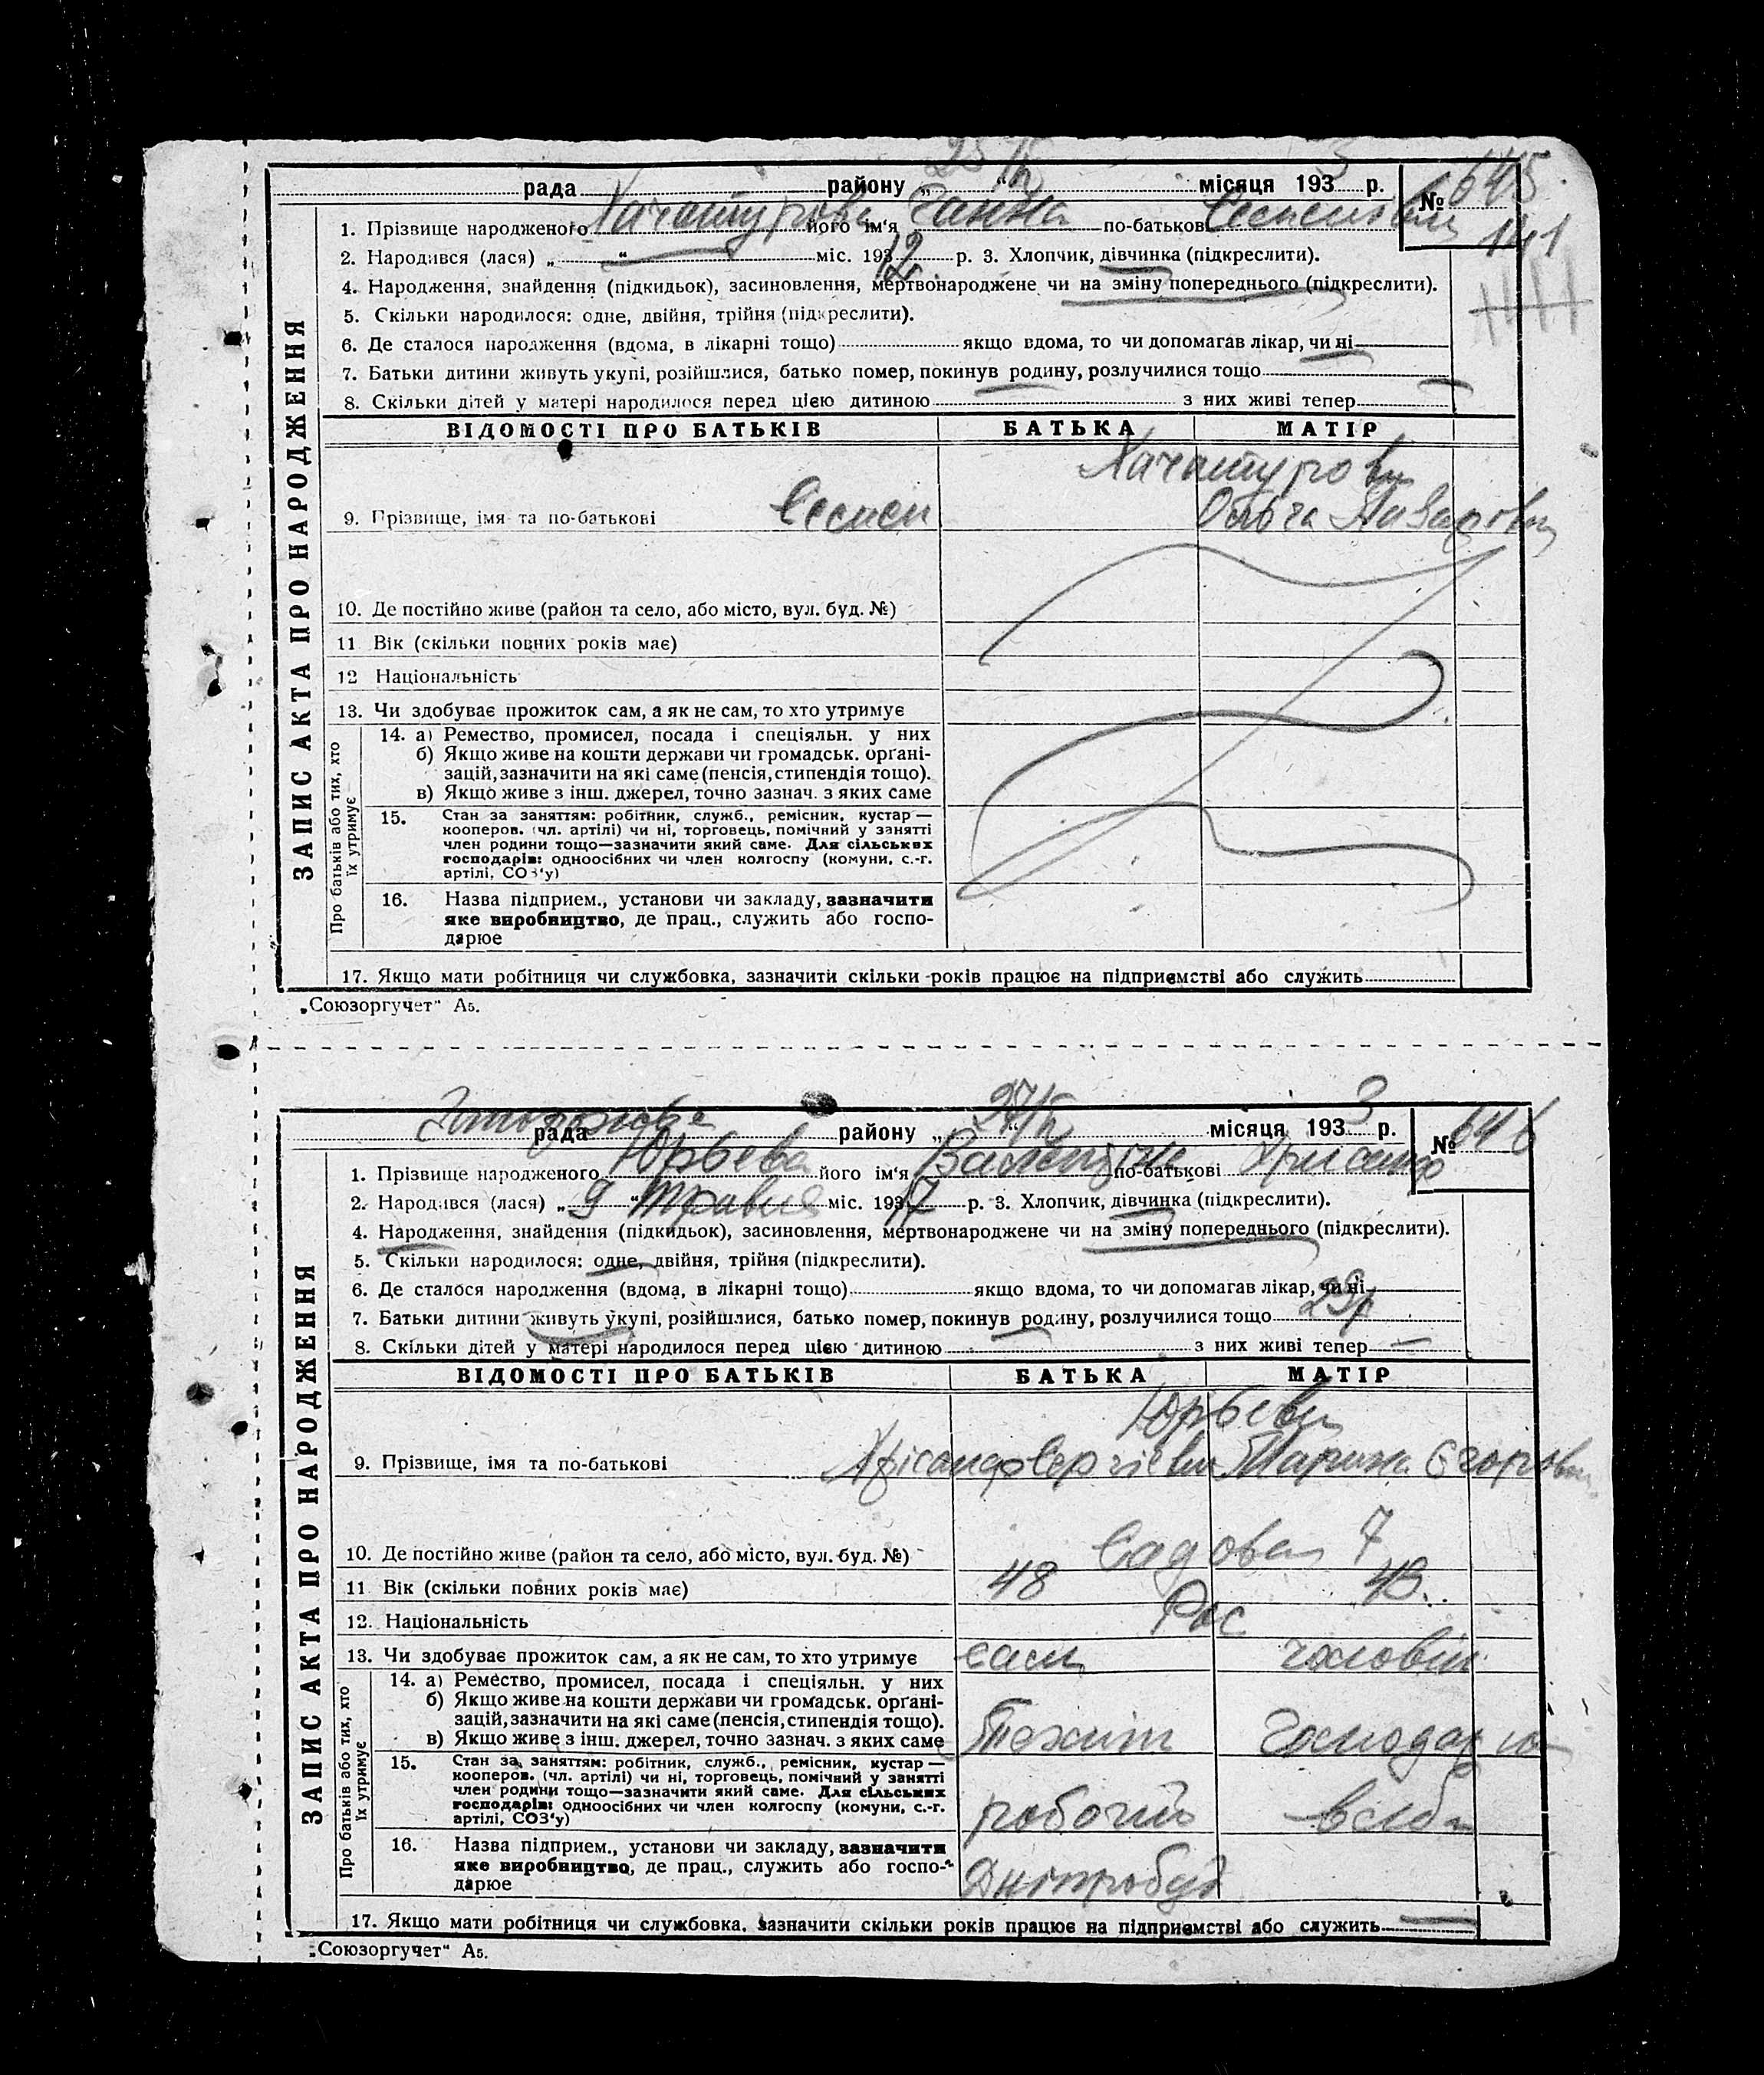 рада районує „25/IV“ місяця 1933 р. № 645
1. Прізвище народженого Хачатурова його ім'я Ганна по-батькові
141
2. Народився (лася) „ “ міс. 1912 р. 3. Хлопчик, дівчинка (підкреслити).
4. Народження, знайдення (підкидьок), засиновлення, мертвонароджене чи на зміну попереднього (підкреслити).
5. Скільки народилося: одне, двійня, трійня (підкреслити).
6. Де сталося народження (вдома, в лікарні тощо) якщо вдома, то чи допомагав лікар, чи ні
7. Батьки дитини живуть укупі, розійшлися, батько помер, покинув родину, розлучилися тощо
8. Скільки дітей у матері народилося перед цією дитиною з них живі тепер —
ЗАПИС АКТА ПРО НАРОДЖЕННЯ
ВІДОМОСТІ ПРО БАТЬКІВ БАТЬКА МАТІР
Хачатурови
9. Прізвище, імя та по-батькові Ольга
10. Де постійно живе (район та село, або місто, вул. буд. №)
11 Вік (скільки повних років має)
12 Національність
13. Чи здобуває прожиток сам, а як не сам, то хто утримує
Про батьків або тих, хто їх утримує
14. а) Ремество, промисел, посада і спеціяльн. у них
б) Якщо живе на кошти держави чи громадськ. орґані-
зацій, зазначити на які саме (пенсія, стипендія тощо).
в) Якщо живе з інш. джерел, точно зазнач. з яких саме
15. Стан за заняттям: робітник, служб., ремісник, кустар —
кооперов. (чл. артілі) чи ні, торговець, помічний у занятті
член родини тощо—зазначити який саме. Для сільських
господарів: одноосібних чи член колгоспу (комуни, с.-г.
артілі, СОЗ'у)
16. Назва підприєм., установи чи закладу, зазначити
яке виробництво, де прац., служить або госпо-
дарює
17. Якщо мати робітниця чи службовка, зазначити скільки років працює на підприємстві або служить
„Союзоргучет“ А5.
рада району „27/IV“ місяця 1933 р. № 646
1. Прізвище народженого Юрьева його ім'я Валентина по-батькові
2. Народився (лася) „9“ травня міс. 1917 р. 3. Хлопчик, дівчинка (підкреслити).
4. Народження, знайдення (підкидьок), засиновлення, мертвонароджене чи на зміну попереднього (підкреслити).
5. Скільки народилося: одне, двійня, трійня (підкреслити).
6. Де сталося народження (вдома, в лікарні тощо) якщо вдома, то чи допомагав лікар, чи ні
7. Батьки дитини живуть укупі, розійшлися, батько помер, покинув родину, розлучилися тощо 29р
8. Скільки дітей у матері народилося перед цією дитиною з них живі тепер —
ЗАПИС АКТА ПРО НАРОДЖЕННЯ
ВІДОМОСТІ ПРО БАТЬКІВ БАТЬКА МАТІР
Юрьеви
9. Прізвище, імя та по-батькові Хрисанф Сергієвич Марина Єгоровн
10. Де постійно живе (район та село, або місто, вул. буд. №) Садовая 7
11 Вік (скільки повних років має) 48 43
12. Національність Рос
13. Чи здобуває прожиток сам, а як не сам, то хто утримує сам чоловік
Про батьків або тих, хто їх утримує
14. а) Ремество, промисел, посада і спеціяльн. у них
б) Якщо живе на кошти держави чи громадськ. орґані-
зацій, зазначити на які саме (пенсія, стипендія тощо).
в) Якщо живе з інш. джерел, точно зазнач. з яких саме Технік
15. Стан за заняттям: робітник, служб., ремісник, кустар —
кооперов. (чл. артілі) чи ні, торговець, помічний у занятті
член родини тощо—зазначити який саме. Для сільських
господарів: одноосібних чи член колгоспу (комуни, с.-г.
артілі, СОЗ'у) робочий
16. Назва підприєм., установи чи закладу, зазначити
яке виробництво, де прац., служить або госпо-
дарює Дніпробуд
17. Якщо мати робітниця чи службовка, зазначити скільки років працює на підприємстві або служить —
„Союзоргучет“ А5.